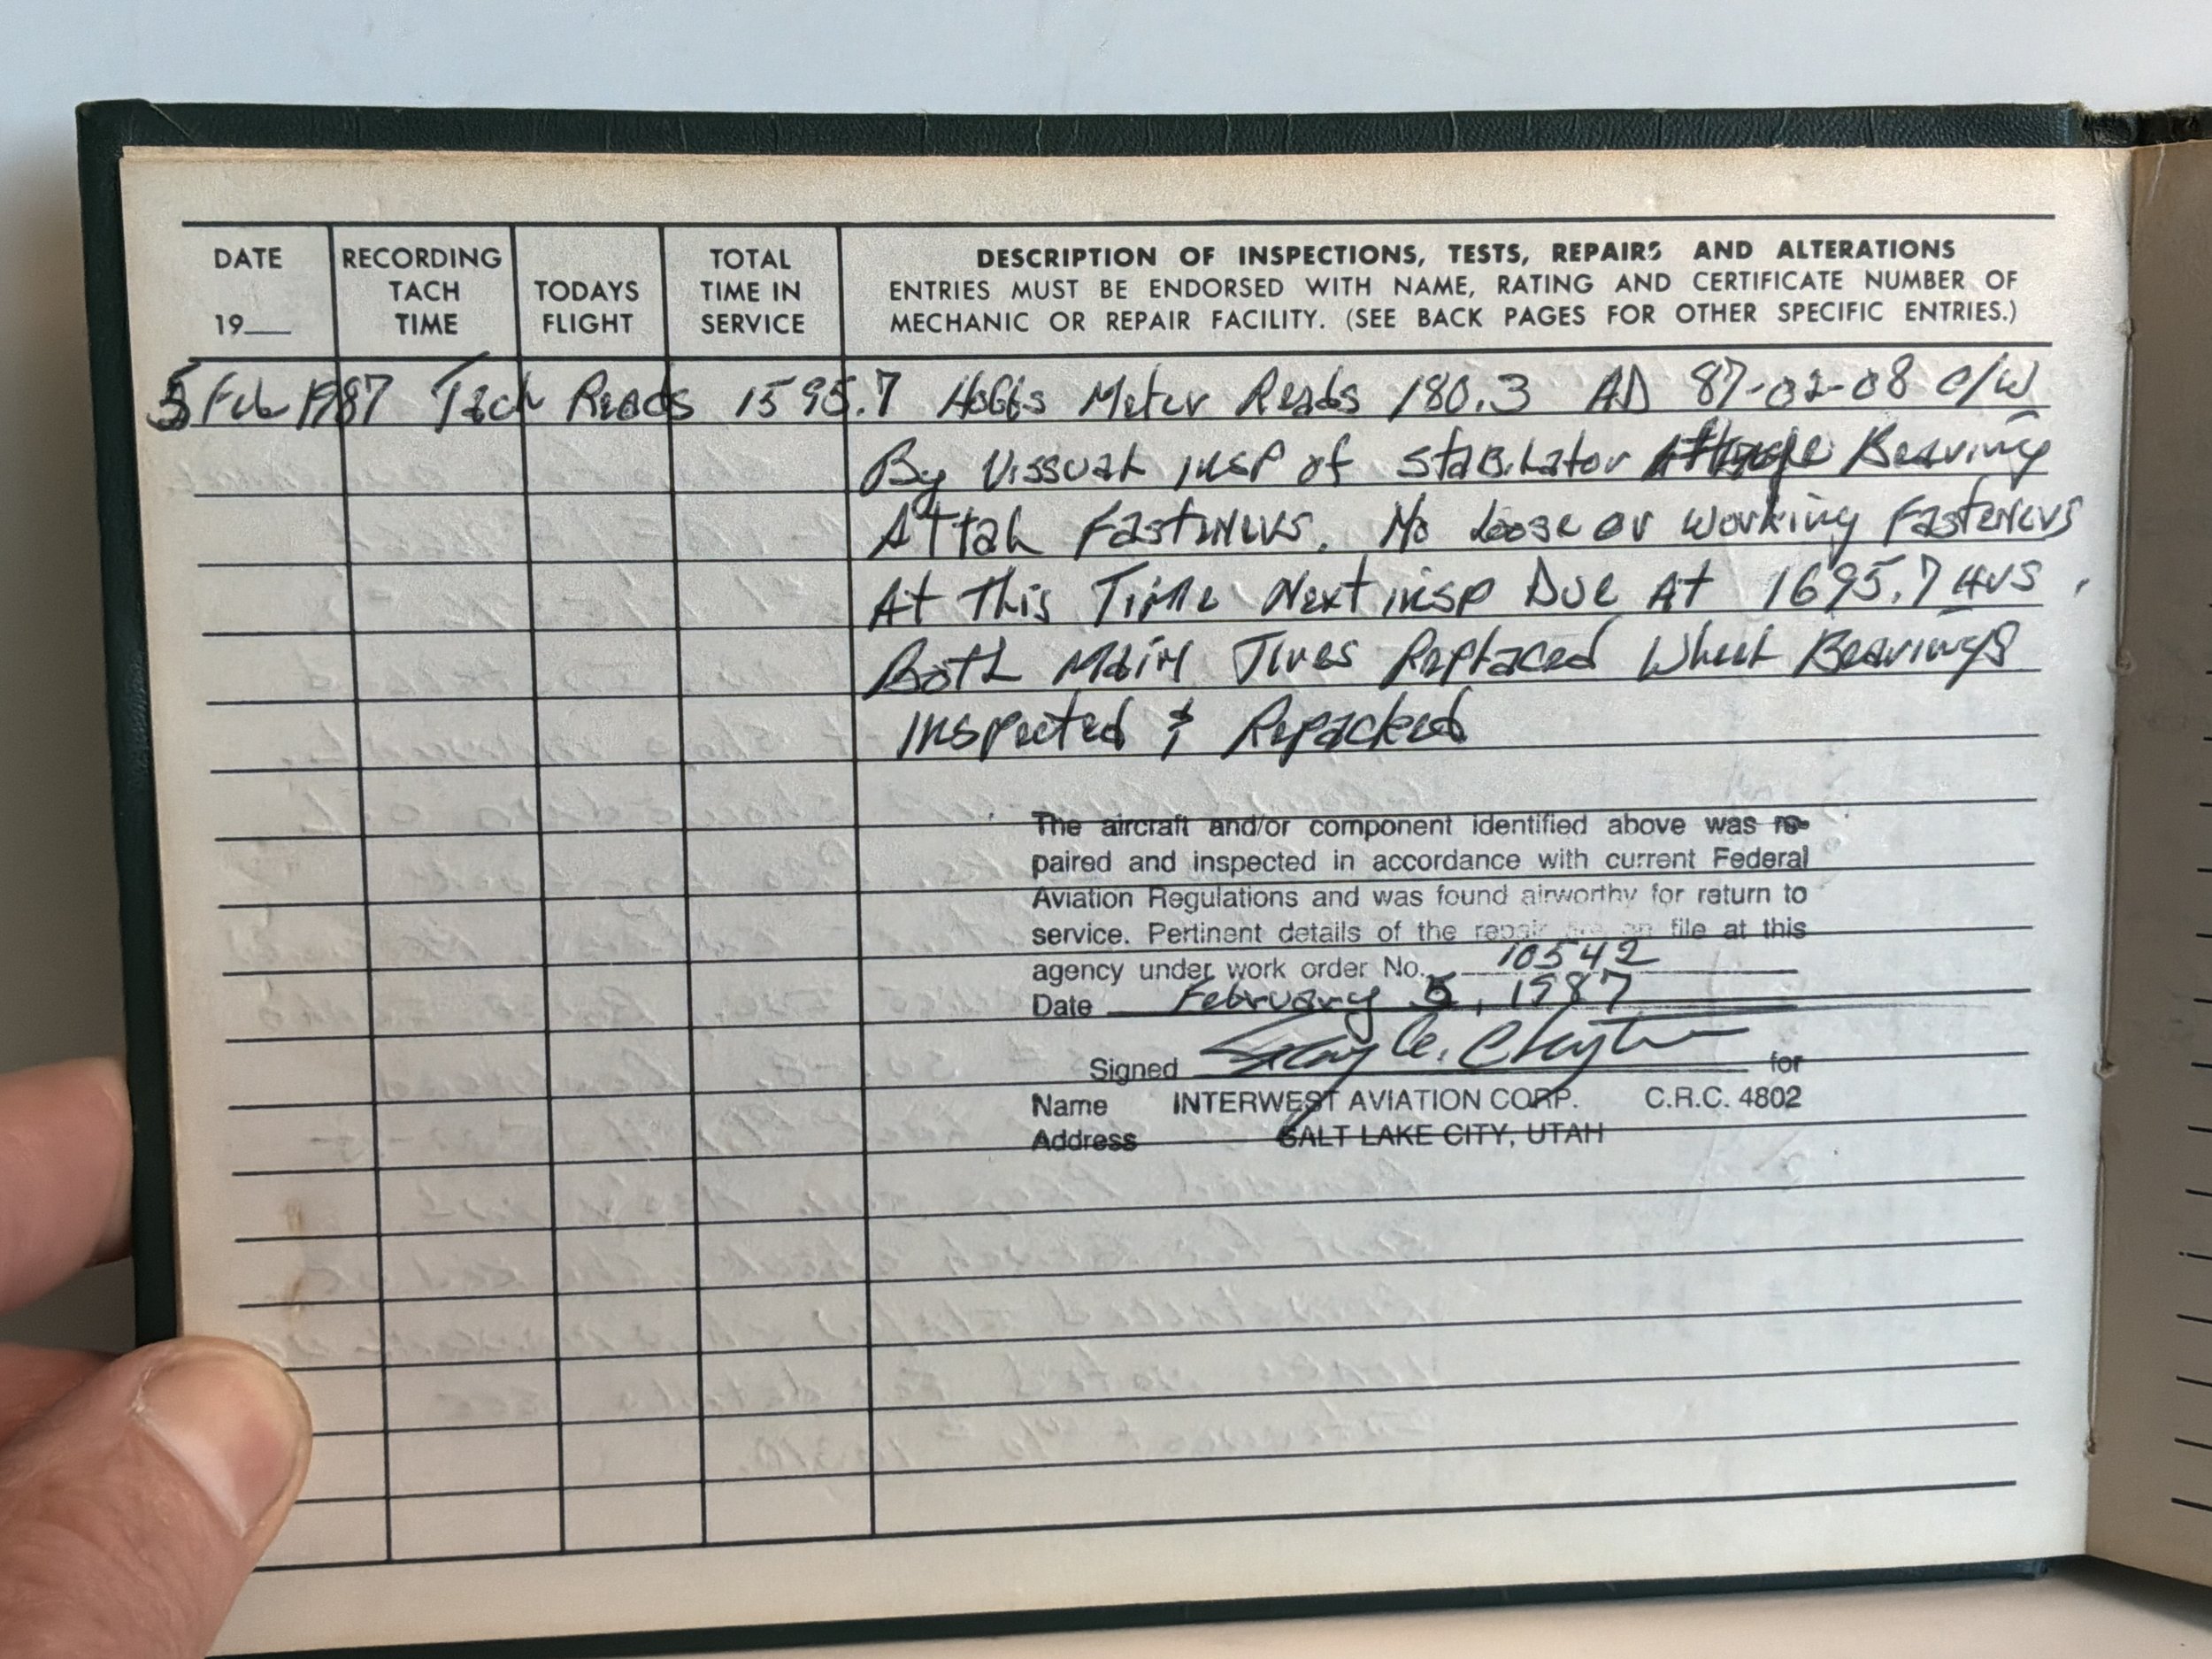 DATE 19__ RECORDING TACH TIME TODAYS FLIGHT TOTAL TIME IN SERVICE
DESCRIPTION OF INSPECTIONS, TESTS, REPAIRS AND ALTERATIONS
ENTRIES MUST BE ENDORSED WITH NAME, RATING AND CERTIFICATE NUMBER OF
MECHANIC OR REPAIR FACILITY. (SEE BACK PAGES FOR OTHER SPECIFIC ENTRIES.)
5 Feb 1987 Tach Reads 1595.7 Hobbs Meter Reads 180.3 AD 87-02-08 C/W
By Vissual insp of Stabilator Bearing
Attah Fasteners. No Loose or Working Fasteners
At This Time Next insp Due At 1695.7 Hrs.
Both Main Tires Replaced Wheel Bearings
Inspected & Repacked
The aircraft and/or component identified above was re-
paired and inspected in accordance with current Federal
Aviation Regulations and was found airworthy for return to
service. Pertinent details of the repair are on file at this
agency under work order No. 10542
Date February 5, 1987
Signed for
Name INTERWEST AVIATION CORP. C.R.C. 4802
Address SALT LAKE CITY, UTAH